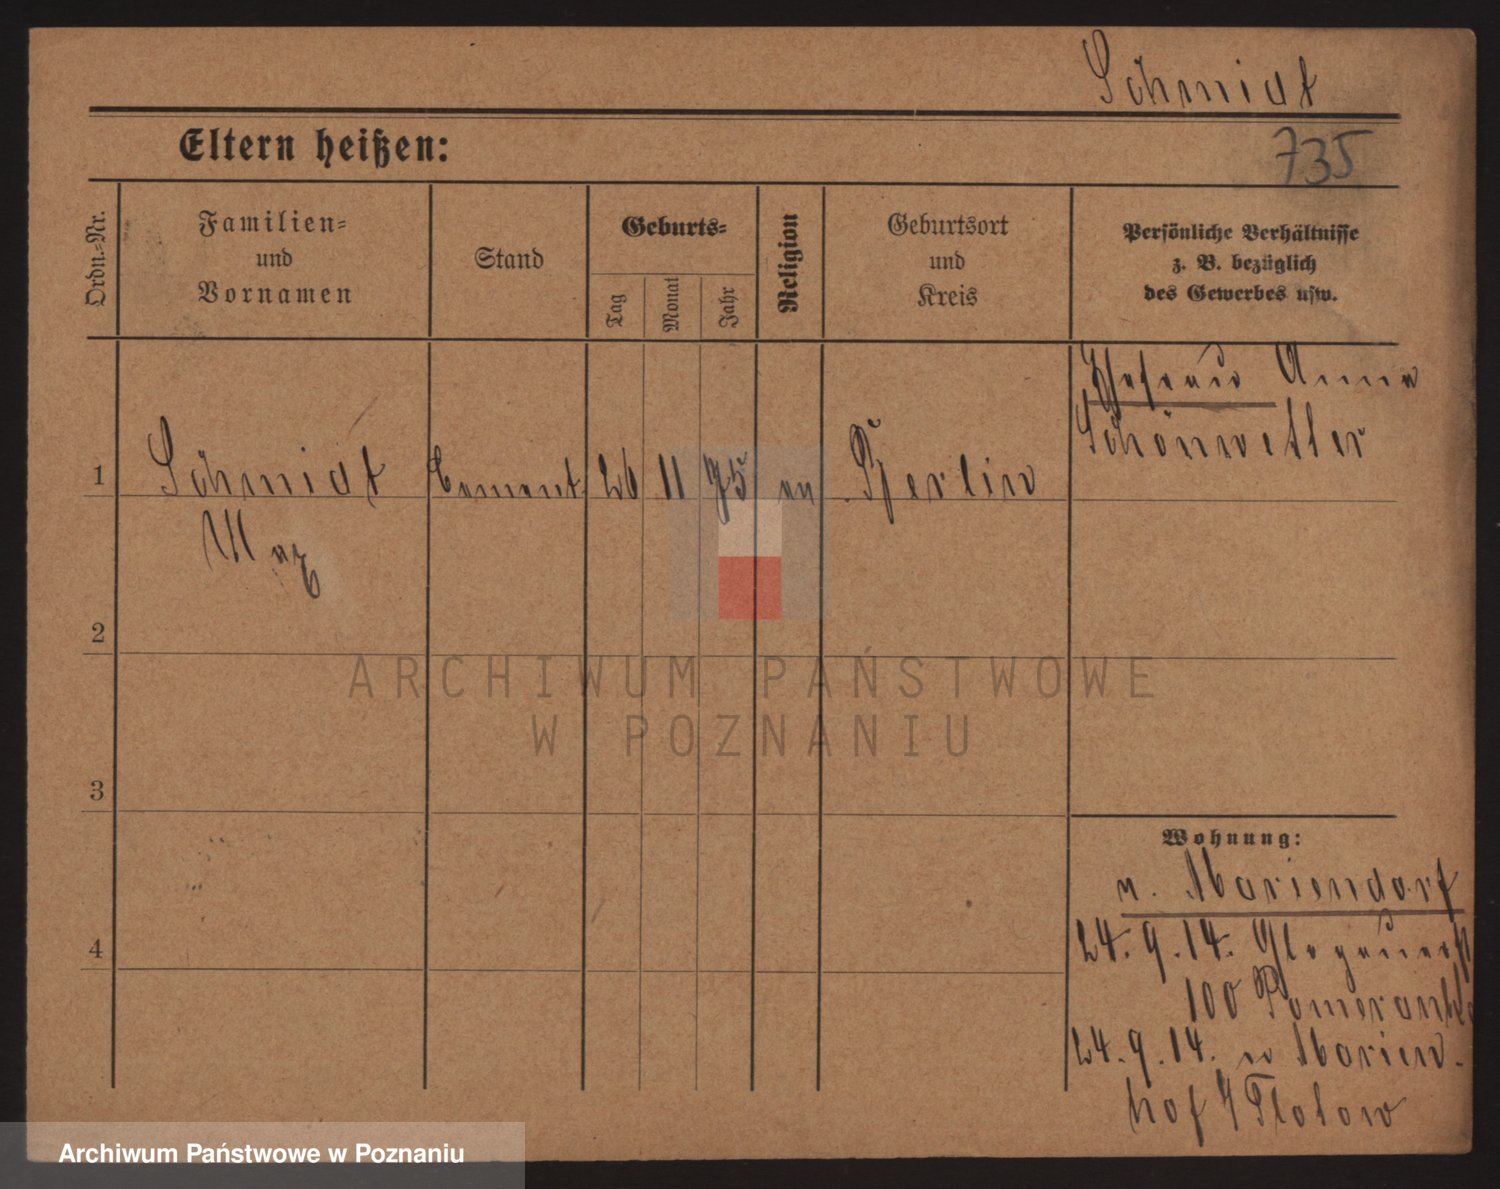 Schmidt
735
Eltern heißen:
Ordn.=Nr.
Familien=
und
Vornamen
Stand
Geburts=
Tag
Monat
Jahr
Religion
Geburtsort
und
Kreis
Persönliche Verhältnisse
z. B. bezüglich
des Gewerbes usw.
Ehefrau Anna
Schönwetter
1
Schmidt
26 11 75 ev Berlin
Max
2
ARCHIWUM PAŃSTWOWE
W POZNANIU
3
Wohnung:
n. Mariendorf
4
24. 9. 14. Glogauerst
100
24. 9. 14. n Marien
hof
Archiwum Państwowe w Poznaniu